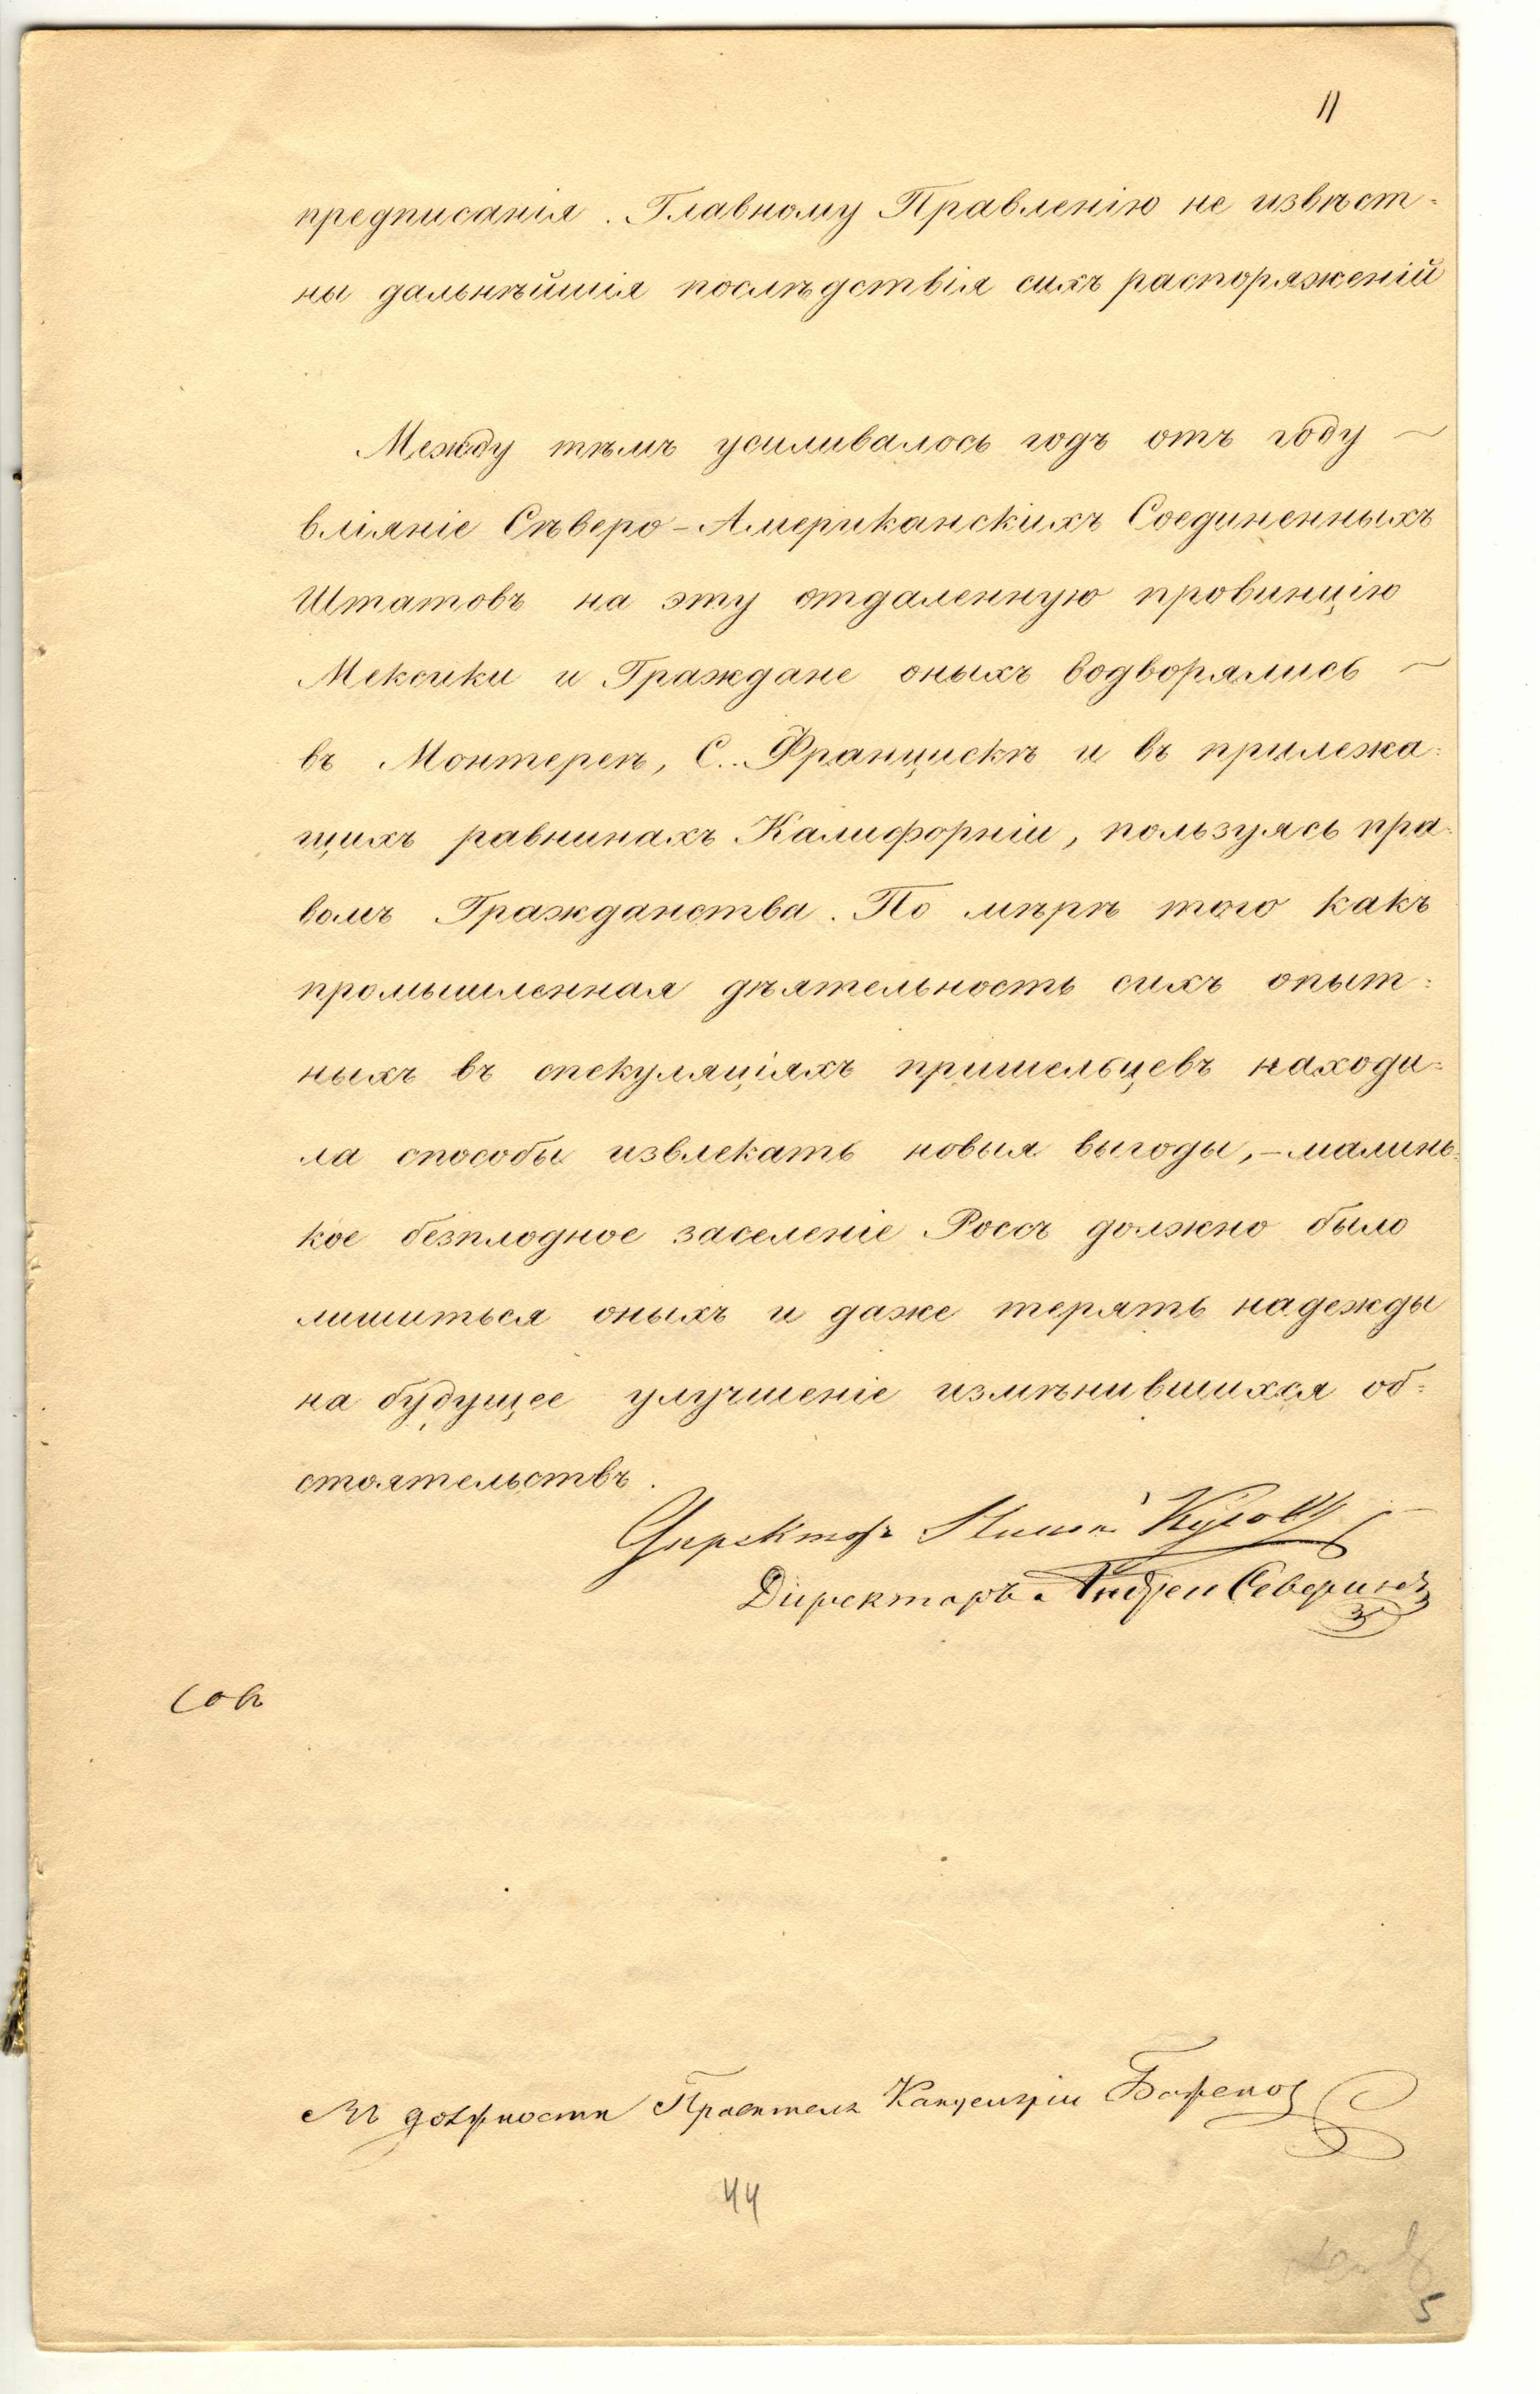 11
предписанія. Главному Правленію не извѣст=
ны дальнѣйшія послѣдствія сихъ распоряженій
Между тѣмъ усиливалось годъ отъ году ~
вліяніе Сѣверо-Американскихъ Соединенныхъ
Штатовъ на эту отдаленную провинцію
Мексики и Граждане оныхъ водворялись ~
въ Монтереѣ, С. Францискѣ и въ прилежа=
щихъ равнинахъ Калифорніи, пользуясь пра=
вомъ Гражданства. По мѣрѣ того какъ
промышленная дѣятельность сихъ опыт=
ныхъ въ спекуляціяхъ пришельцевъ находи=
ла способы извлекать новыя выгоды,-малинь=
кое безплодное заселеніе Россъ должно было
лишиться оныхъ и даже терять надежды
на будущее улучшеніе измѣнившихся об=
стоятельствъ.
Директоръ
Директоръ Андрей Северинъ
въ должности Правителя Канцеляріи
44
5